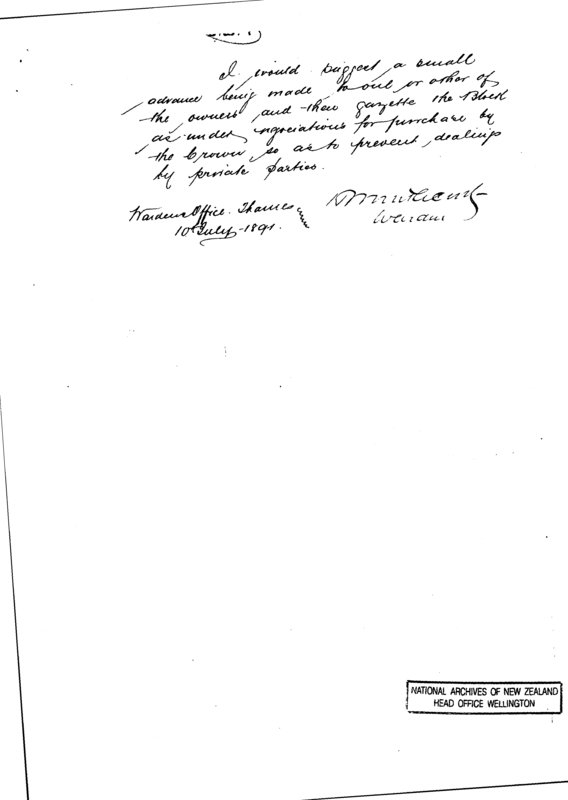 I would suggest a small
advance being made to one or other of
the owners and then gazette the Block
as under negociations for purchase by
the Crown, so as to prevent dealings
by private parties.
Wardens Office. Thames
10 July 1891.
Warden
NATIONAL ARCHIVES OF NEW ZEALAND
HEAD OFFICE WELLINGTON